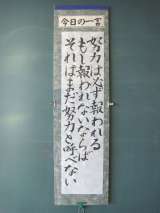 今日の一言
努力は必ず報われる
もし報われないならば
それはまだ努力と呼べない